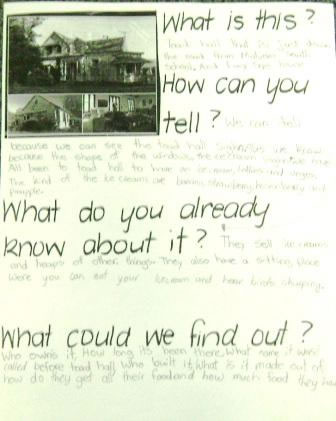 What is this?
Toad hall that is just down
the road from Motueka South
School. And Long ago house
How can you
tell? We can tell
because we can see the toad hall sign. Also we know
because the shape of the windows, the icecream
All been to toad hall to have an icecream, lollies and
The kind of the icecreams are banana, strawberry, boysenberry and
pinapple.
What do you already
know about it? They sell icecreams
and heaps of other things. They also have a sitting place
were you can eat your icecream and hear birds chirping.
What could we find out?
Who owns it, How long its been there, What name it was
called before toad hall Who built it, What is it made out of,
how do they get all their food and how much food they have